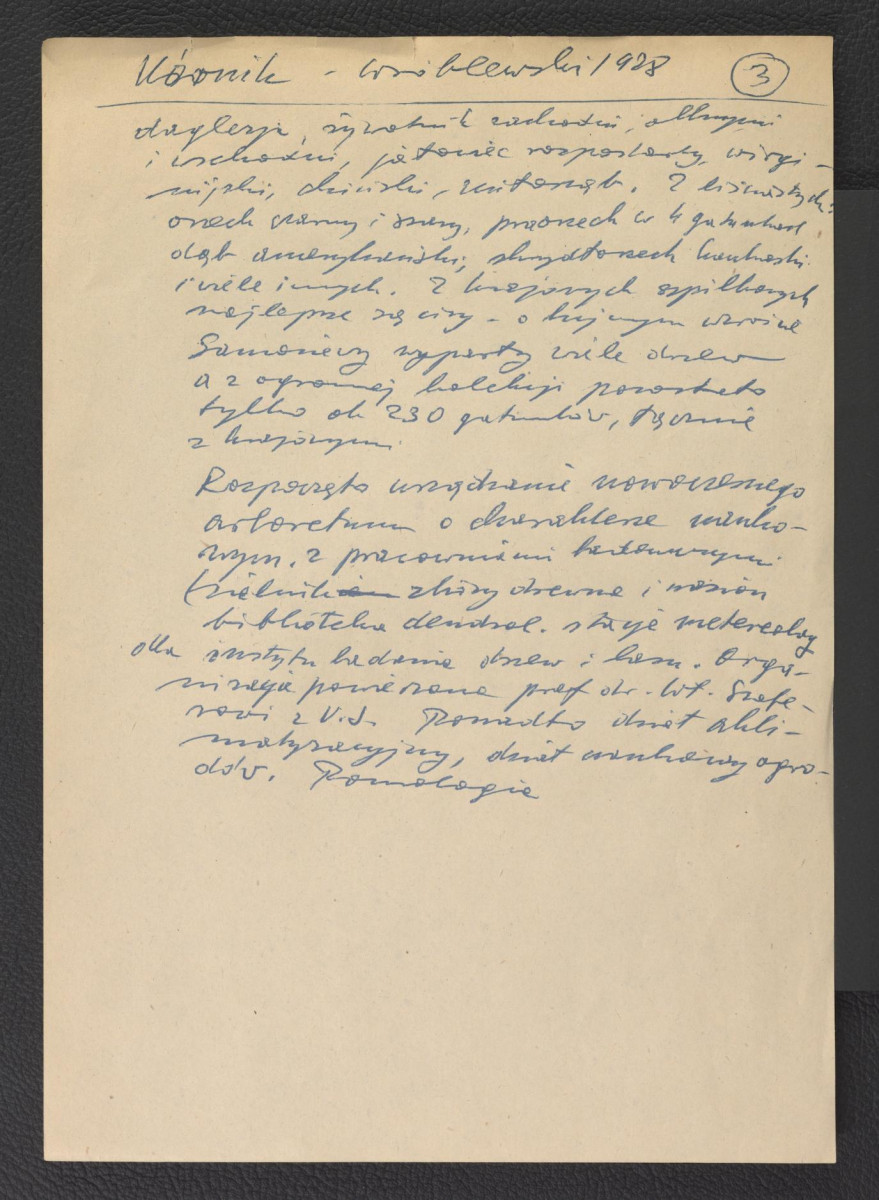 Kórnik - Wróblewski 1928 (3)
daglezja, żywotnik zachodni, olbrzymi
i wschodni, jałowiec rozpostarty, wirgi-
nijski, chiński, miłorząb. Z liściastych:
orzech czarny i szary, praorzech w 4 gatunkach
dąb amerykański, skrzydłorzech kaukaski
i wiele innych. Z krajowych szpilkowych
najlepsze są cisy - o bujnym wzroście
Samosiewy wyparły wiele drzew
a z ogromnej kolekcji pozostało
tylko ok 230 gatunków, łącznie
z krajowymi.
Rozpoczęto urządzanie nowoczesnego
arboretum o charakterze nauko-
wym, z pracowniami badawczymi
(zielnik zbiory drewna i nasion
biblioteka dendrol. stacje metereolog
dla instytu badania drzew i lasu. Orga-
nizacja powierzona prof dr. Wł. Szafe-
rowi z U.J. Ponadto dział akli-
matyzacyjny, dział naukowy ogro-
dów. Pomologia